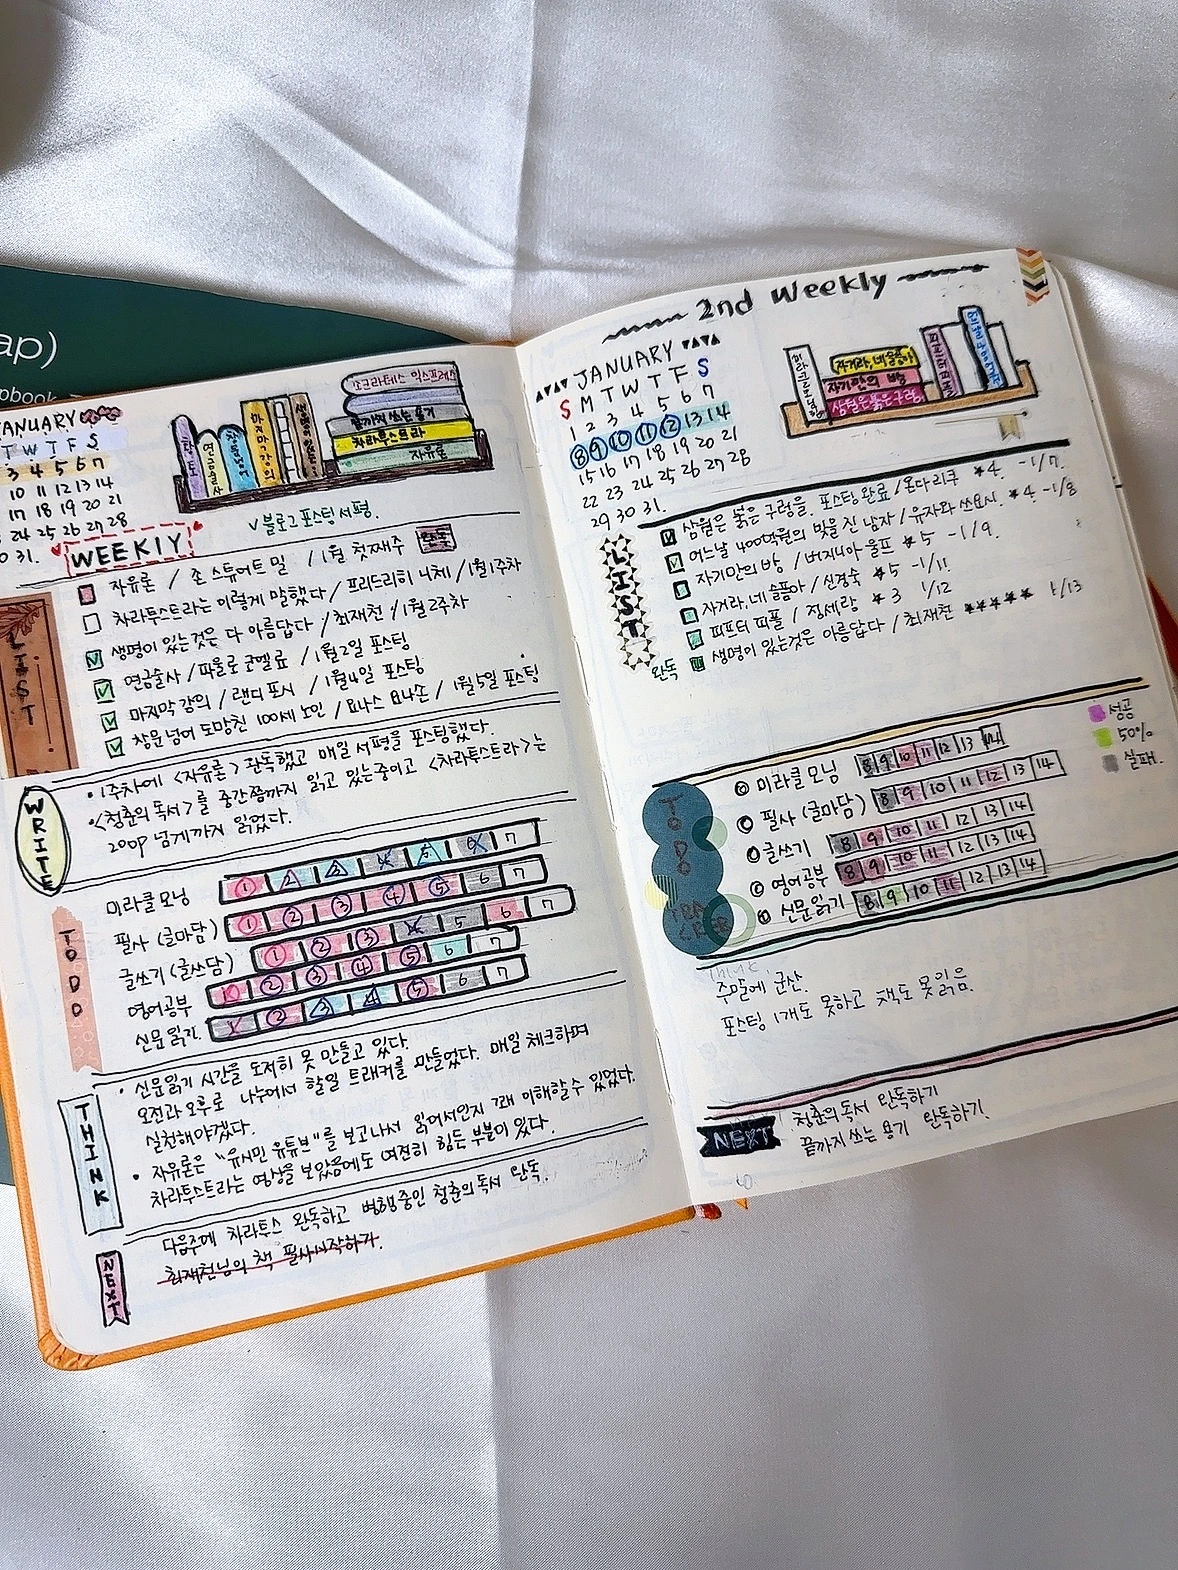 ap)
pbook
ANUARY
T W T F S
3 4 5 6 7
10 11 12 13 14
17 18 19 20 21
24 25 26 27 28
0 31.
연금술사
마지막 강의
소크라테스 익스프레스
끝까지 쓰는 용기
차라투스트라
자유론
V 블로그 포스팅 서평.
WEEKLY
LIST
자유론 / 존 스튜어트 밀 / 1월 첫째주 완독
차라투스트라는 이렇게 말했다 / 프리드리히 니체 / 1월 1주차
생명이 있는것은 다 아름답다 / 최재천 / 1월 2주차
연금술사 / 파울로 코엘료 / 1월 2일 포스팅
마지막 강의 / 랜디 포시 / 1월 4일 포스팅
창문 넘어 도망친 100세 노인 / 요나스 요나손 / 1월 5일 포스팅
WRITE
• 1주차에 <자유론> 완독했고 매일 서평을 포스팅했다.
• <청춘의 독서>를 중간쯤까지 읽고 있는중이고 <차라투스트라>는
200p 넘게까지 읽었다.
TO DO
미라클 모닝 1 2 3 4 5 6 7
필사 (글마담) 1 2 3 4 5 6 7
글쓰기 (글쓰담) 1 2 3 4 5 6 7
영어공부 1 2 3 4 5 6 7
신문 읽기. 1 2 3 4 5 6 7
THINK
• 신문읽기 시간을 도저히 못 만들고 있다.
오전과 오후로 나누어서 할일 트래커를 만들었다. 매일 체크하며
실천해야겠다.
• 자유론은 "유시민 유튜브"를 보고나서 읽어서인지 꽤 이해할수 있었다.
차라투스트라는 영상을 보았음에도 여전히 힘든 부분이 있다.
NEXT
다음주에 차라투스 완독하고 병행중인 청춘의 독서 완독.
최재천님의 책 필사시작하기.
2nd Weekly
JANUARY
S M T W T F S
1 2 3 4 5 6 7
8 9 10 11 12 13 14
15 16 17 18 19 20 21
22 23 24 25 26 27 28
29 30 31.
미라클모닝
자거라, 네 슬픔아
자기만의 방
삼월은 붉은 구렁을
피프티 피플
LIST
삼월은 붉은 구렁을. 포스팅 완료 / 온다 리쿠 *4. -1/7.
어느날 400억원의 빚을 진 남자 / 유자와 쓰요시. *4 -1/8
자기만의 방 / 버지니아 울프 *5 -1/9.
자거라, 네 슬픔아 / 신경숙 *5 -1/11.
피프티 피플 / 정세랑 *3 1/12
완독 생명이 있는것은 아름답다 / 최재천 ***** 1/13
성공
50%
실패.
TO DO
미라클 모닝 8 9 10 11 12 13 14
필사 (글마담) 8 9 10 11 12 13 14
글쓰기 8 9 10 11 12 13 14
영어공부 8 9 10 11 12 13 14
신문읽기 8 9 10 11 12 13 14
주말에 군산.
포스팅 1개도 못하고 책도 못 읽음.
NEXT
청춘의 독서 완독하기
끝까지 쓰는 용기 완독하기.